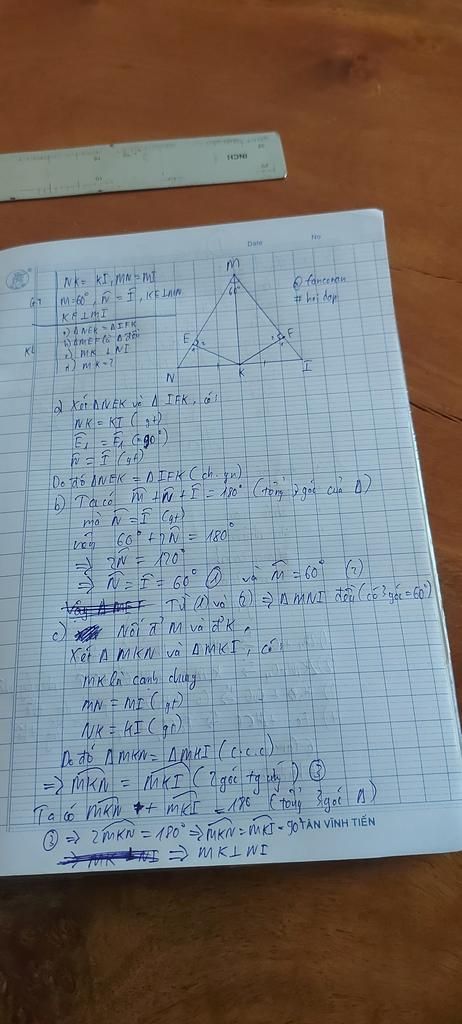 INCH
Date No
GT
NK = KI, MN = MI
M = 60°, N̂ = Î, KE⊥MN
KF⊥MI
KL
a) ΔNEK = ΔIFK
c) MK ⊥ NI
d) MK = ?
M
60°
E
1
2
F
N
K
I
@ tanconan
# hỏi đáp
a) Xét ΔNEK và ΔIFK, có:
NK = KI (gt)
Ê₁ = F̂₁ (=90°)
N̂ = Î (gt)
Do đó ΔNEK = ΔIFK (ch.gn)
b) Ta có M̂ + N̂ + Î = 180° (tổng 3 góc của Δ)
mà N̂ = Î (gt)
nên 60° + 2N̂ = 180°
⇒ 2N̂ = 120°
⇒ N̂ = Î = 60° ① và M̂ = 60° (2)
Từ (1) và (2) ⇒ ΔMNI đều (có 3 góc = 60°)
c) Nối đ' M và đ' K,
Xét ΔMKN và ΔMKI, có:
MK là cạnh chung
MN = MI (gt)
NK = KI (gt)
Do đó ΔMKN = ΔMKI (c.c.c)
⇒ MKN = MKI (2 góc tg ứng) ③
Ta có MKN + MKI = 180 (tổng 3 góc Δ)
③ ⇒ 2MKN = 180° ⇒ MKN = MKI = 90°
TÂN VĨNH TIẾN
⇒ MK ⊥ NI